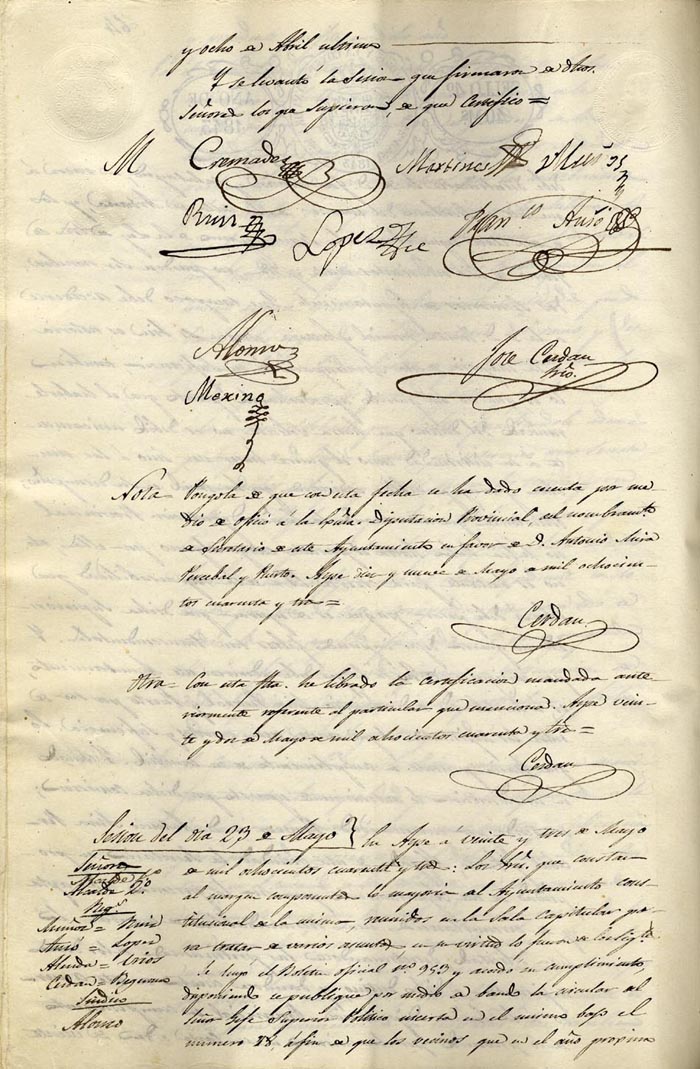 y ocho de Abril ultimo
Y se levantó la Sesion que firmaron de dhos.
Señores los que supieron, de que Certifico =
M Cremades Martinez Muñoz
Ruiz Lopez Franco Ausó
Alonso Jose Cerdan
Srio.
Merino
Nota Pongola de que con esta fecha se ha dado cuenta por me
dio de oficio á la Exma. Diputacion Provincial, del nombramto.
de Secretario de este Ayuntamiento en favor de D. Antonio Mira
Percebal y Aspe diez y nueve de Mayo de mil ochocien
tos cuarenta y tres =
Cerdan
Otra = Con esta fha. he librado la certificacion mandada ante-
riormente referente al particular que menciona. Aspe vein-
te y dos de Mayo de mil ochocientos cuarenta y tres =
Cerdan
Sesion del dia 23 de Mayo } En Aspe á veinte y tres de Mayo
Señores de mil ochocientos cuarenta y tres: Los Sres. que constan
Alcalde 2º al margen componentes la mayoria del Ayuntamiento cons-
Regs. titucional de la misma, reunidos en la Sala Capitular pa-
Muñoz = Ruiz ra tratar de varios asuntos, en su virtud lo fueron de los sigtes.
Ausó = Lopez
Almida = Urios Se leyó el Boletin oficial nº 953 y acordó su cumplimiento,
Cerdan = disponiendo se publique por medio de bando la circular del
Sindico Señor Gefe Superior Politico inserta en el mismo bajo el
Alonso numero 88, á fin de que los vecinos que en el año proximo